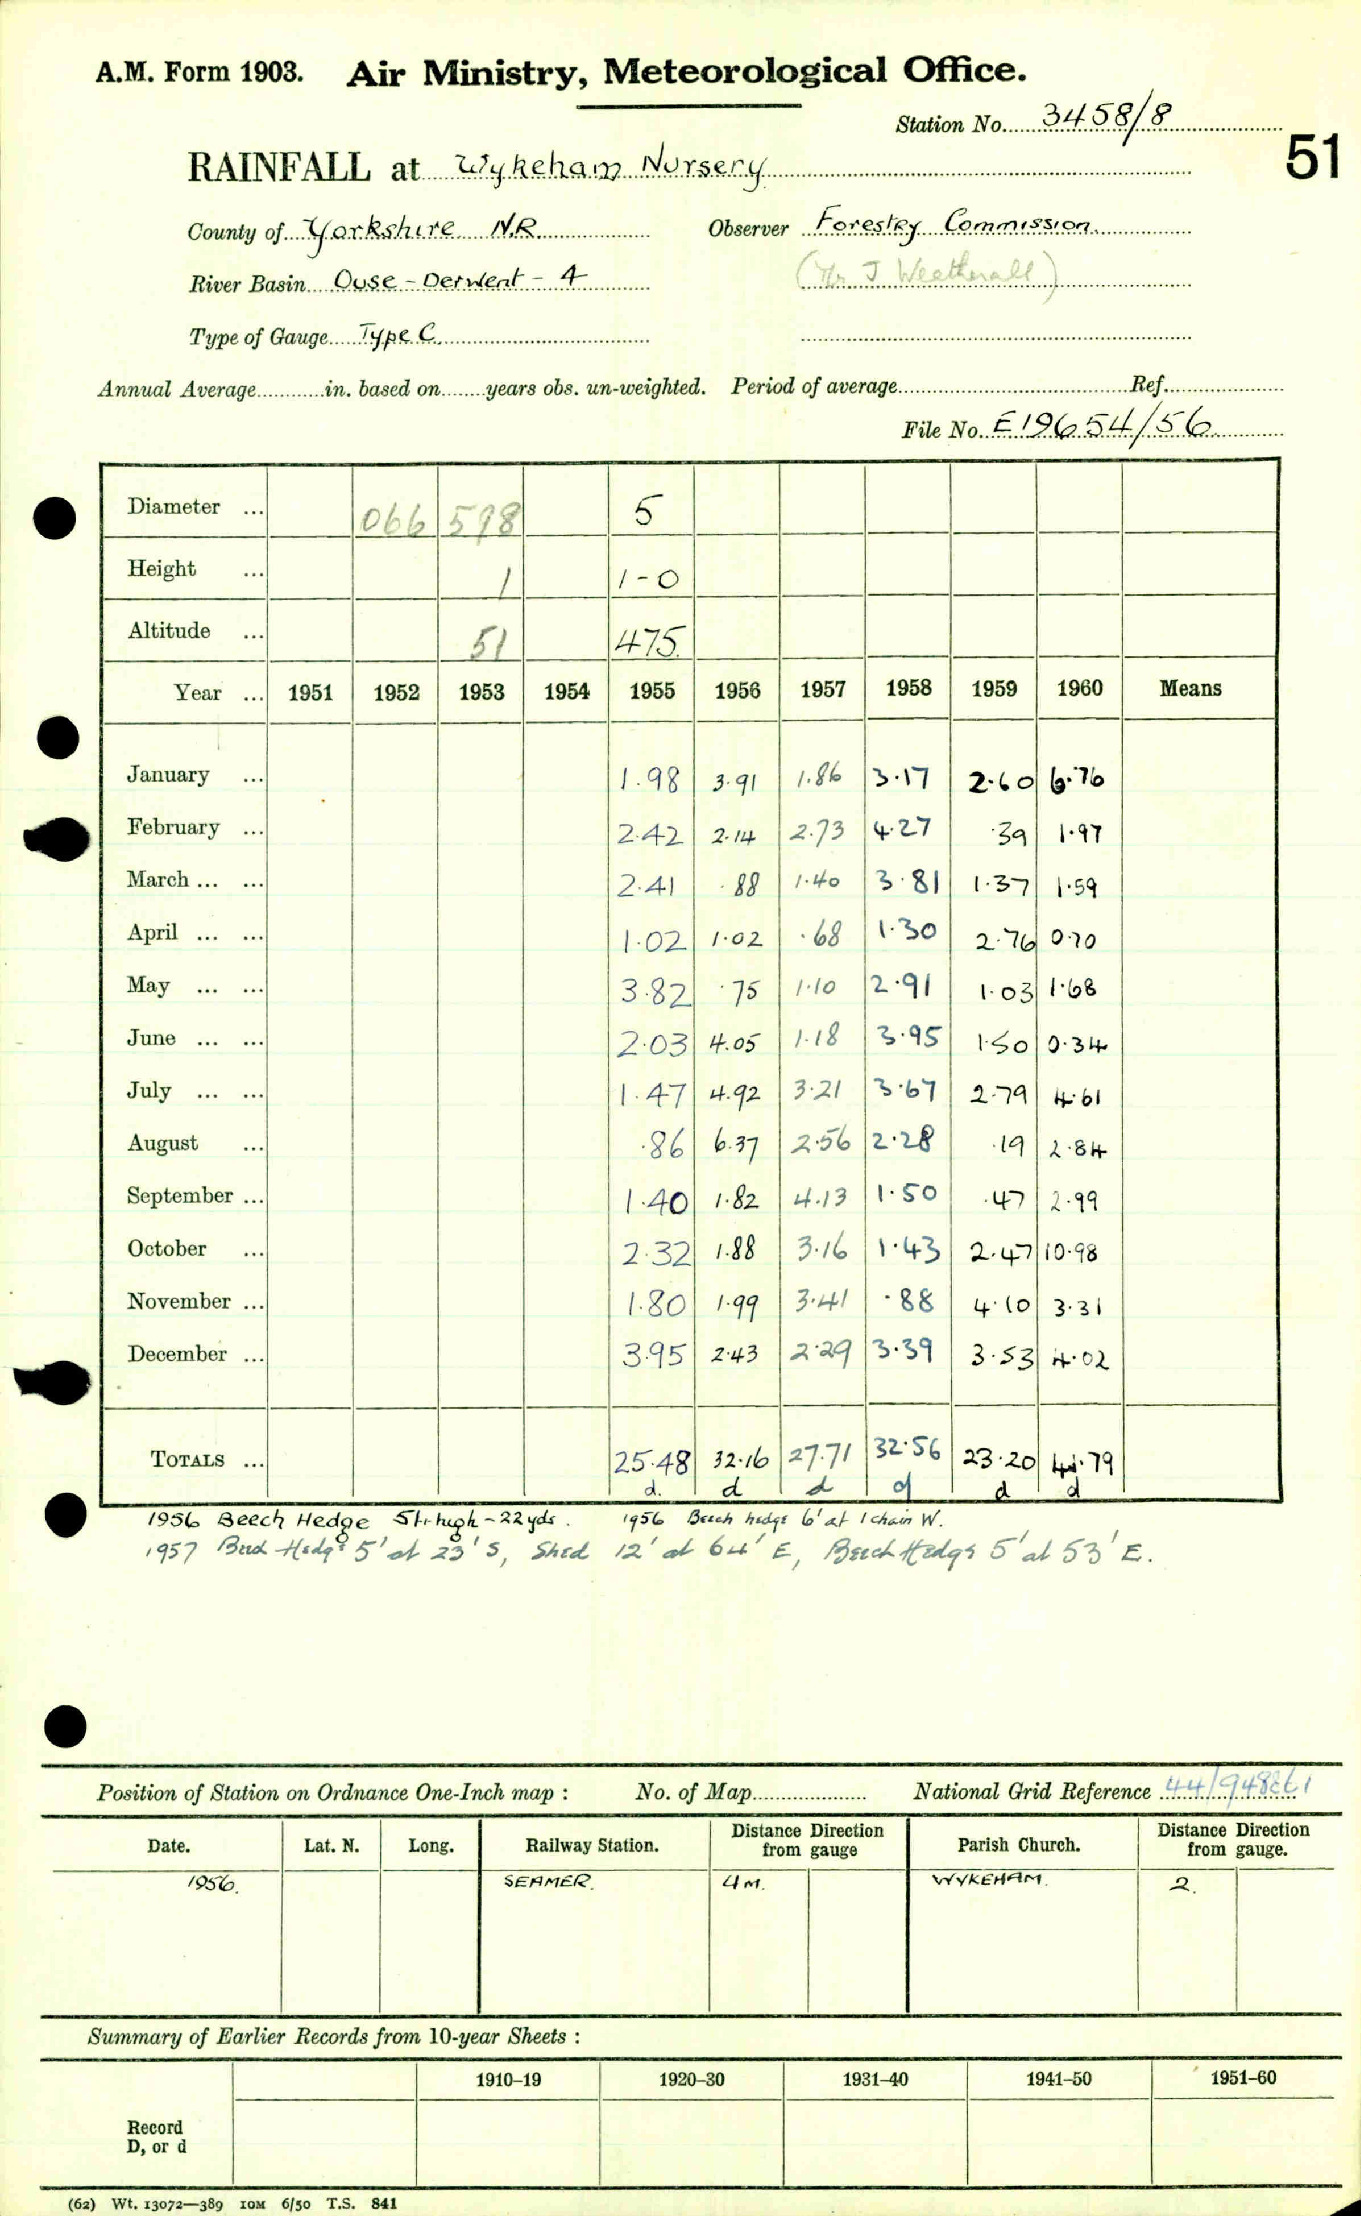 A.M. Form 1903. Air Ministry, Meteorological Office.
Station No. 3458/8
51
RAINFALL at Wykeham Nursery
County of Yorkshire N.R. Observer Forestry Commission
River Basin Ouse - Derwent - 4 (Mr J Weatherall)
Type of Gauge Type C
Annual Average............in. based on........years obs. un-weighted. Period of average............Ref............
File No. E19654/56
Diameter ... 066 598 5
Height ... 1 1-0
Altitude ... 51 475
Year ... 1951 1952 1953 1954 1955 1956 1957 1958 1959 1960 Means
January ... 1.98 3.91 1.86 3.17 2.60 6.76
February ... 2.42 2.14 2.73 4.27 .39 1.97
March ... ... 2.41 .88 1.40 3.81 1.37 1.59
April ... ... 1.02 1.02 .68 1.30 2.76 0.70
May ... ... 3.82 .75 1.10 2.91 1.03 1.68
June ... ... 2.03 4.05 1.18 3.95 1.50 0.34
July ... ... 1.47 4.92 3.21 3.67 2.79 4.61
August ... .86 6.37 2.56 2.28 .19 2.84
September ... 1.40 1.82 4.13 1.50 .47 2.99
October ... 2.32 1.88 3.16 1.43 2.47 10.98
November ... 1.80 1.99 3.41 .88 4.10 3.31
December ... 3.95 2.43 2.29 3.39 3.53 4.02
TOTALS ... 25.48 32.16 27.71 32.56 23.20 41.79
d. d d d d d
1956 Beech Hedge 5ft high - 22 yds. 1956 Beech hedge 6' at 1 chain W.
1957 Beech Hedge 5' at 23' S, Shed 12' at 64' E, Beech Hedge 5' at 53' E.
Position of Station on Ordnance One-Inch map : No. of Map............ National Grid Reference 44/948861
Date. Lat. N. Long. Railway Station. Distance Direction from gauge Parish Church. Distance Direction from gauge.
1956. SEAMER. 4 M. WYKEHAM. 2.
Summary of Earlier Records from 10-year Sheets :
1910–19 1920–30 1931–40 1941–50 1951–60
Record
D, or d
(62) Wt. 13072—389 10M 6/50 T.S. 841